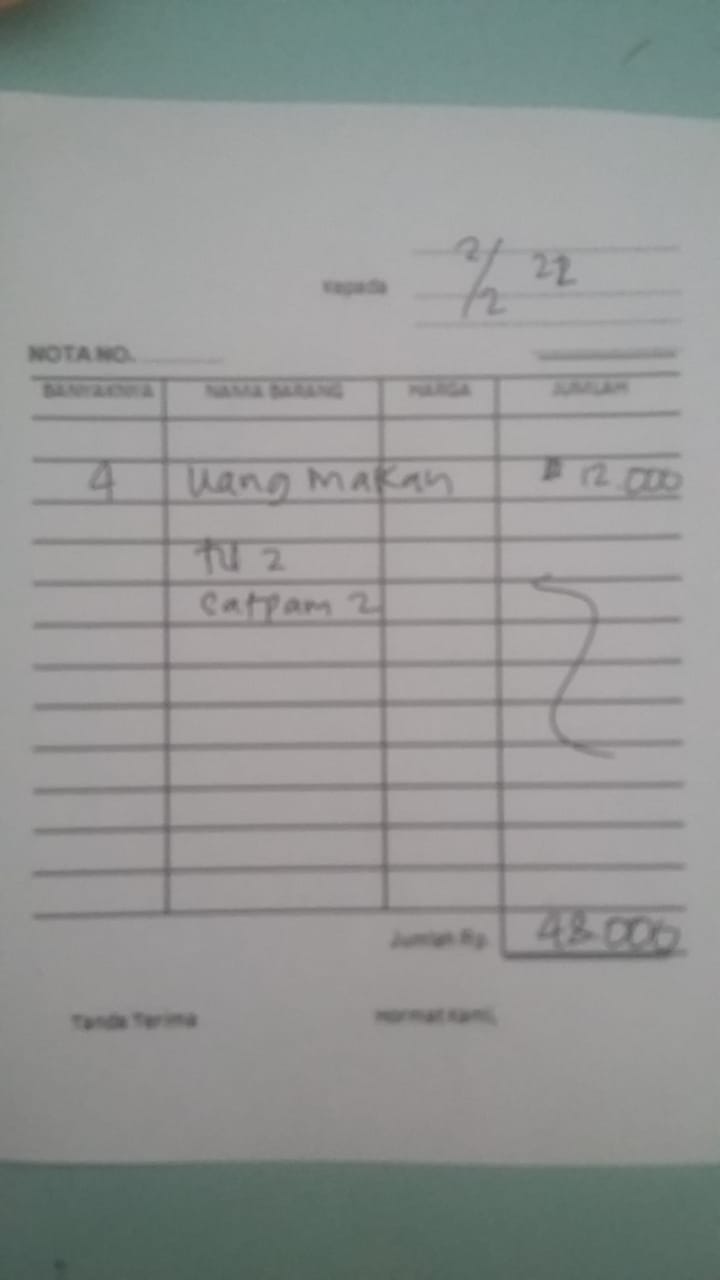 2/2 22
Kepada
NOTA NO.
BANYAKNYA NAMA BARANG HARGA JUMLAH
4 Uang Makan 12.000
TU 2
Satpam 2
Jumlah Rp. 48.000
Tanda Terima Hormat Kami,